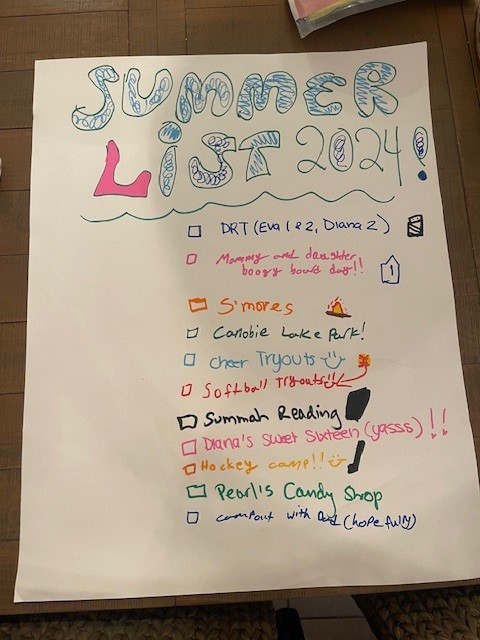 SUMMER
LIST 2024!
DRT (Eva 1 & 2, Diana 2)
Mommy and daughter
boogy board day!!
1
S'mores
Canobie Lake Park!
Cheer Tryouts
Softball Tryouts!!
Summah Reading
Diana's Sweet Sixteen (yasss)!!
Hockey camp!!
Pearl's Candy Shop
campout with Dad (hopefully)